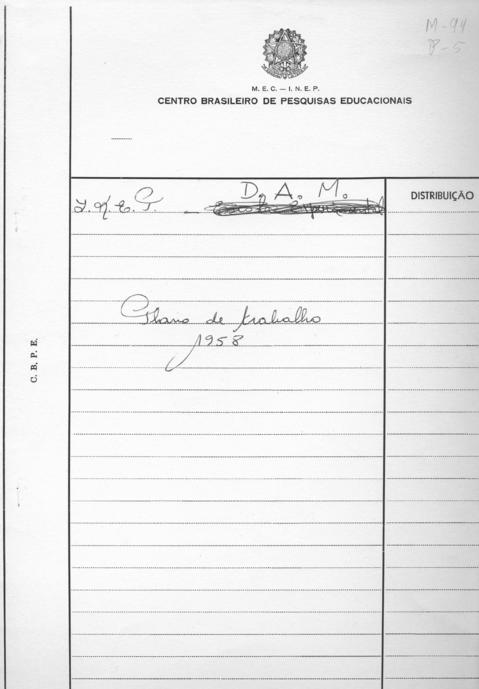 M-94
P-5
M. E. C. — I. N. E. P.
CENTRO BRASILEIRO DE PESQUISAS EDUCACIONAIS
D. A. M.
DISTRIBUIÇÃO
Plano de trabalho
1958
C. B. P. E.